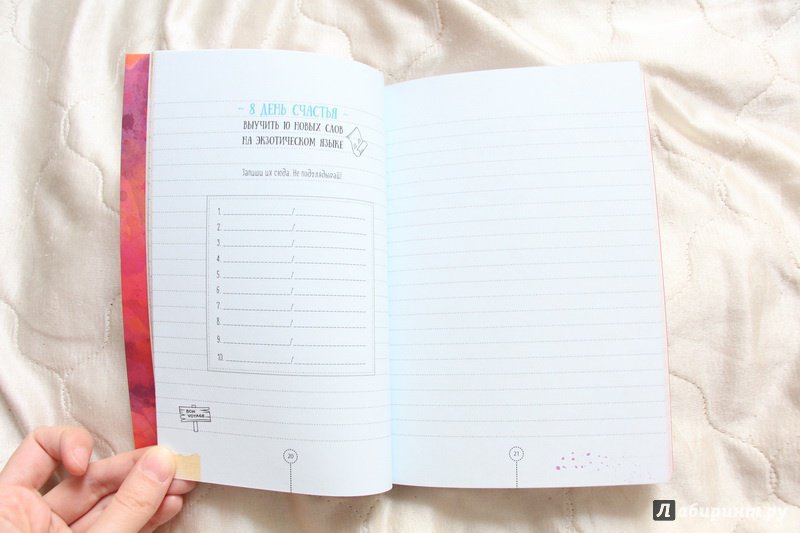 - 8 ДЕНЬ СЧАСТЬЯ -
ВЫУЧИТЬ 10 НОВЫХ СЛОВ
НА ЭКЗОТИЧЕСКОМ ЯЗЫКЕ
Запиши их сюда. Не подглядывай!
1. ____________/____________
2. ____________/____________
3. ____________/____________
4. ____________/____________
5. ____________/____________
6. ____________/____________
7. ____________/____________
8. ____________/____________
9. ____________/____________
10. ____________/____________
BON
VOYAGE
20
21
Лабиринт.ру